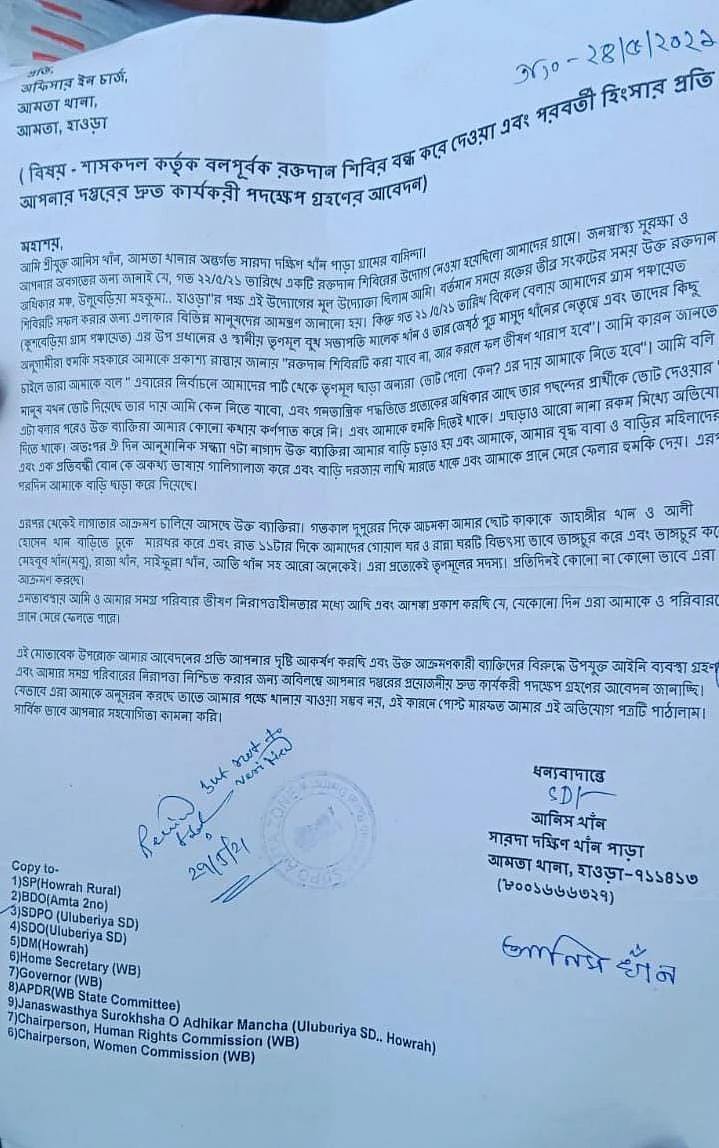 প্রতি,
অফিসার ইন চার্জ,
আমতা থানা,
আমতা, হাওড়া
তাং - ২৪/৫/২০২১
( বিষয় - শাসকদল কর্তৃক বলপূর্বক রক্তদান শিবির বন্ধ করে দেওয়া এবং পরবর্তী হিংসার প্রতি
আপনার দপ্তরের দ্রুত কার্যকরী পদক্ষেপ গ্রহণের আবেদন)
মহাশয়,
আমি শ্রীযুক্ত আনিস খাঁন, আমতা থানার অন্তর্গত সারদা দক্ষিণ খাঁন পাড়া গ্রামের বাসিন্দা।
আপনার অবগতের জন্য জানাই যে, গত ২২/৫/২১ তারিখে একটি রক্তদান শিবিরের উদ্যোগ নেওয়া হয়েছিলো আমাদের গ্রামে। জনস্বাস্থ্য সুরক্ষা ও
অধিকার মঞ্চ, উলুবেড়িয়া মহকুমা.. হাওড়া"র পক্ষে এই উদ্যোগের মূল উদ্যোক্তা ছিলাম আমি। বর্তমান সময়ে রক্তের তীব্র সংকটের সময় উক্ত রক্তদান
শিবিরটি সফল করার জন্য এলাকার বিভিন্ন মানুষদের আমন্ত্রণ জানানো হয়। কিন্তু গত ২১/৫/২১ তারিখ বিকেল বেলায় আমাদের গ্রাম পঞ্চায়েত
(কুশবেড়িয়া গ্রাম পঞ্চায়েত) এর উপ প্রধানের ও স্থানীয় তৃনমূল বুথ সভাপতি মালেক খাঁন ও তার জেষ্ঠ পুত্র মাসুদ খাঁনের নেতৃত্বে এবং তাদের কিছু
অনুগামীরা হুমকি সহকারে আমাকে প্রকাশ্য রাস্তায় জানায় "রক্তদান শিবিরটি করা যাবে না, আর করলে ফল ভীষণ খারাপ হবে"। আমি কারন জানতে
চাইলে তারা আমাকে বলে " এবারের নির্বাচনে আমাদের পার্ট থেকে তৃনমূল ছাড়া অন্যরা ভোট পেলো কেন? এর দায় আমাকে নিতে হবে"। আমি বলি
মানুষ যখন ভোট দিয়েছে তার দায় আমি কেন নিতে যাবো, এবং গনতান্ত্রিক পদ্ধতিতে প্রত্যেকের অধিকার আছে তার পছন্দের প্রার্থীকে ভোট দেওয়ার
এটা বলার পরেও উক্ত ব্যাক্তিরা আমার কোনো কথায় কর্ণপাত করে নি। এবং আমাকে হুমকি দিতেই থাকে। এছাড়াও আরো নানা রকম মিথ্যে অভিযো
দিতে থাকে। অতঃপর ঐ দিন আনুমানিক সন্ধ্যা ৭টা নাগাদ উক্ত ব্যাক্তিরা আমার বাড়ি চড়াও হয় এবং আমাকে, আমার বৃদ্ধ বাবা ও বাড়ির মহিলাদের
এবং এক প্রতিবন্ধী বোন কে অকথ্য ভাষায় গালিগালাজ করে এবং বাড়ি দরজায় লাথি মারতে থাকে এবং আমাকে প্রানে মেরে ফেলার হুমকি দেয়। এরপ
পরদিন আমাকে বাড়ি ছাড়া করে দিয়েছে।
এরপর থেকেই লাগাতার আক্রমন চালিয়ে আসছে উক্ত ব্যাক্তিরা। গতকাল দুপুরের দিকে আচমকা আমার ছোট কাকাকে জাহাঙ্গীর খান ও আলী
হোসেন খান বাড়িতে ঢুকে মারধর করে এবং রাত ১১টার দিকে আমাদের গোয়াল ঘর ও রান্না ঘরটি বিভৎস্য ভাবে ভাঙ্গচুর করে এবং ভাঙ্গচুর কে
মেহবুব খাঁন(মবু), রাজা খাঁন, সাইফুল্লা খাঁন, আতি খাঁন সহ আরো অনেকেই। এরা প্রত্যেকেই তৃনমূলের সদস্য। প্রতিদিনই কোনো না কোনো ভাবে এরা
আক্রমণ করছে।
এমতাবস্থায় আমি ও আমার সমগ্র পরিবার ভীষণ নিরাপত্তাহীনতার মধ্যে আছি এবং আশঙ্কা প্রকাশ করছি যে, যেকোনো দিন এরা আমাকে ও পরিবারকে
প্রানে মেরে ফেলতে পারে।
এই মোতাবেক উপরোক্ত আমার আবেদনের প্রতি আপনার দৃষ্টি আকর্ষণ করছি এবং উক্ত আক্রমণকারী ব্যাক্তিদের বিরুদ্ধে উপযুক্ত আইনি ব্যবস্থা গ্রহণ
এবং আমার সমগ্র পরিবারের নিরাপত্তা নিশ্চিত করার জন্য অবিলম্বে আপনার দপ্তরের প্রয়োজনীয় দ্রুত কার্যকরী পদক্ষেপ গ্রহণের আবেদন জানাচ্ছি।
যেভাবে এরা আমাকে অনুসরন করছে তাতে আমার পক্ষে থানায় যাওয়া সম্ভব নয়, এই কারনে পোস্ট মারফত আমার এই অভিযোগ পত্রটি পাঠালাম।
সার্বিক ভাবে আপনার সহযোগিতা কামনা করি।
but not to
verified
29/5/21
ধন্যবাদান্তে
SD/-
আনিস খাঁন
সারদা দক্ষিণ খাঁন পাড়া
আমতা থানা, হাওড়া-৭১১৪১৩
(৮০০১৬৬৬৩২৭)
আনিস খাঁন
Copy to-
1)SP(Howrah Rural)
2)BDO(Amta 2no)
3)SDPO (Uluberiya SD)
4)SDO(Uluberiya SD)
5)DM(Howrah)
6)Home Secretary (WB)
7)Governor (WB)
8)APDR(WB State Committee)
9)Janaswasthya Surokhsha O Adhikar Mancha (Uluboriya SD.. Howrah)
7)Chairperson, Human Rights Commission (WB)
6)Chairperson, Women Commission (WB)